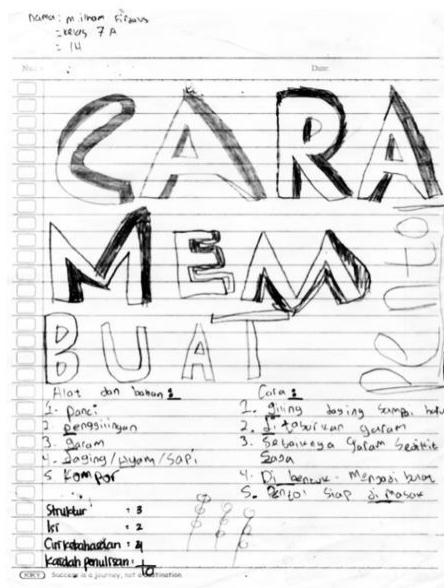 nama: m ilham Firdaus
= kelas 7A
= 14
No.:
Date:
CARA
MEM
BUAT
Pentol
Alat dan bahan :
1. Panci
2. penggilingan
3. garam
4. daging/Ayam/sapi
5. Kompor
Cara :
1. giling daging sampai
2. di taburkan garam
3. Sebaiknya garam sedikit
saja
4. Di bentuk mengadi bulat
5. Pentol siap di masak
Struktur : 3
Isi : 2
Ciri kebahasaan : 4
Kaidah penulisan : 1
10
Success is a journey, not a destination.